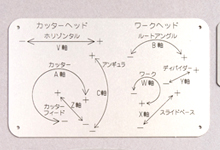 カッターヘッド
ホリゾンタル
− V軸 +
カッター
A軸
+ アンギュラ
C軸
Z軸
カッター
フィード
ワークヘッド
ルートアングル
B軸
ディバイダー
Y軸
ワーク
W軸
X軸
スライドベース